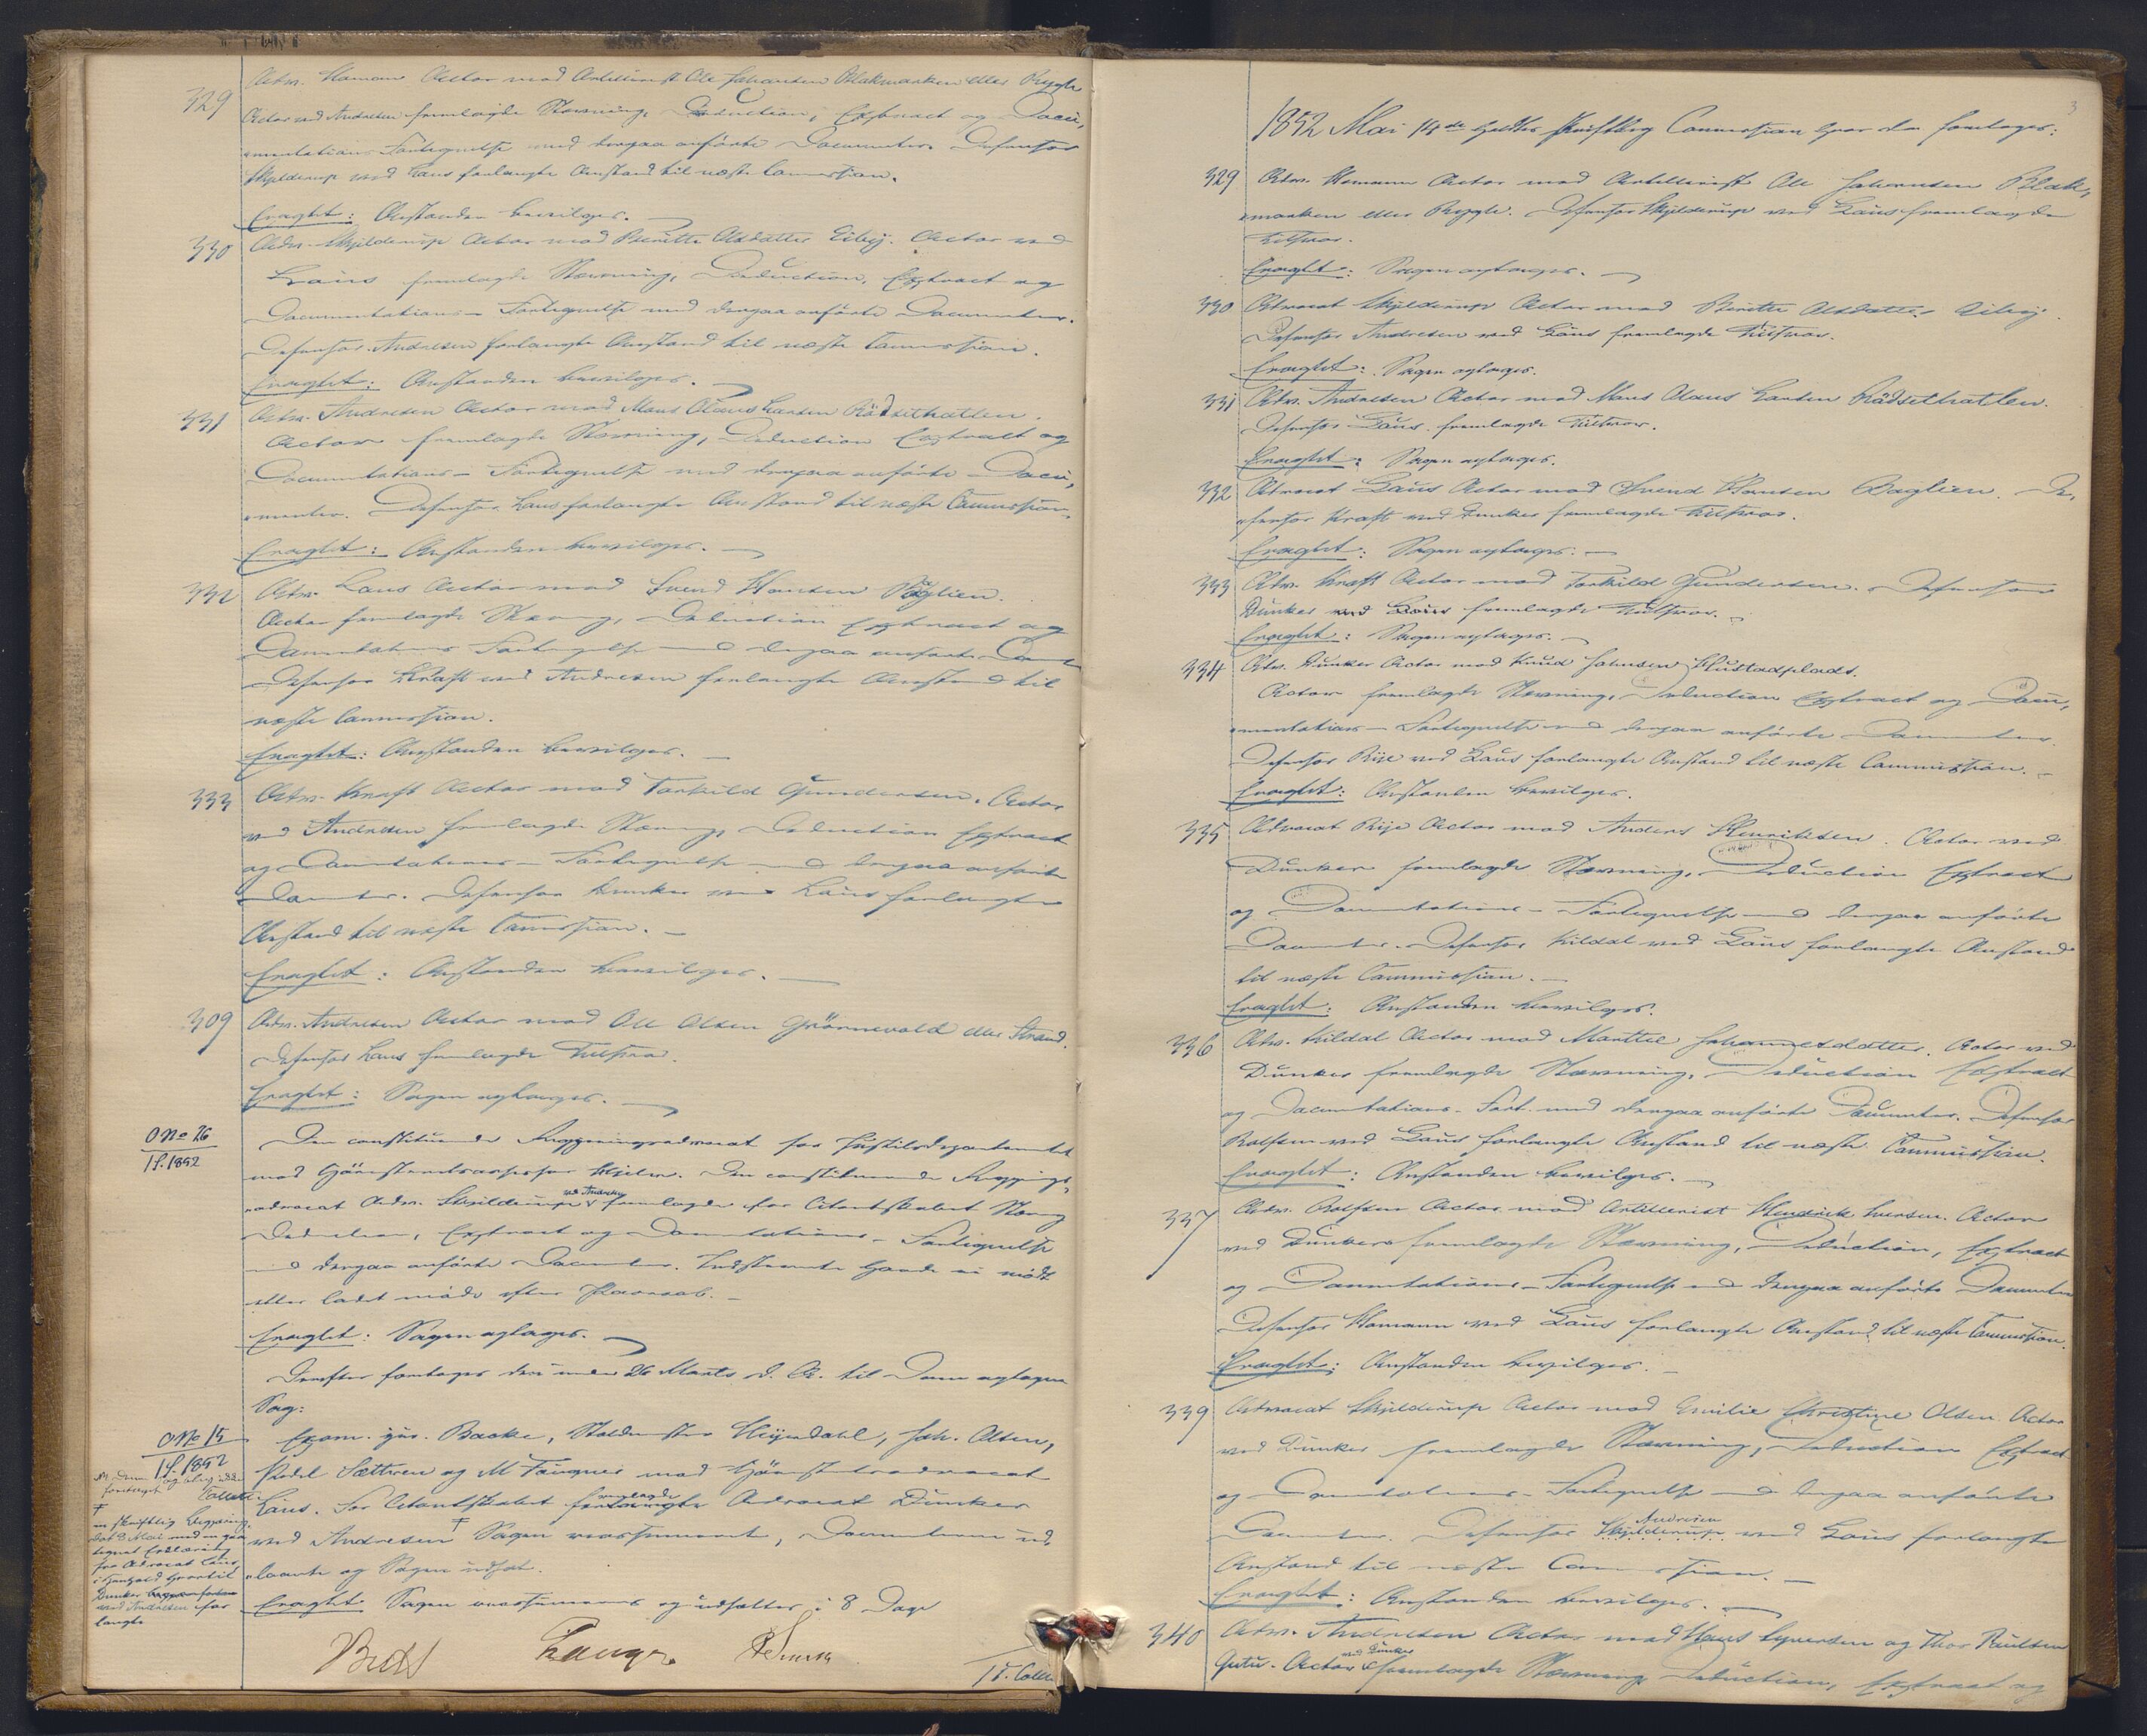 329 Adv. Homann Actor mod Artillerist Ole Johansen Blakmarken eller Rygh
Actor ved Andresen fremlagde Stævning, Deduction, Extract og Docu-
mentations-Fortegnelse med derpaa anførte Documenter. Defensor
Skjelderup ved Laus forlangte Anstand til næste Commission.
Eragtet: Anstanden bevilges.
330 Adv. Skjelderup Actor mod Berette Olsdatter Eiby. Actor ved
Laus fremlagde Stævning, Deduction, Extract og
Documentations-Fortegnelse med derpaa anførte Documenter.
Defensor Andresen forlangte Anstand til næste Commission.
Eragtet: Anstanden bevilges.
331 Adv. Andresen Actor mod Mons Olaus Larsen Rödsethatlen.
Actor fremlagde Stævning, Deduction Extract og
Documentations-Fortegnelse med derpaa anførte Docu-
menter. Defensor Laus forlangte Anstand til næste Commission.
Eragtet: Anstanden bevilges.
332 Adv. Laus Actor mod Svend Hansen Baglien.
Actor fremlagde Stævning, Deduction Extract og
Documentations Fortegnelse med derpaa anførte Documenter
Defensor Kraft ved Andresen forlangte Anstand til
næste Commission.
Eragtet: Anstanden bevilges.
333 Adv. Kraft Actor mod Torkild Gundersen. Actor
ved Andresen fremlagde Stævning, Deduction Extract
og Documentations-Fortegnelse med derpaa anførte
Documenter. Defensor Dunker ved Laus forlangte
Anstand til næste Commission.
Eragtet: Anstanden bevilges.
309 Adv. Andresen Actor mod Ole Olsen Grönnevold eller Strand.
Defensor Laus fremlagde Tilsvar.
Eragtet: Sagen optages.
O No 26
1 S. 1852
Den constituerede Regjeringsadvocat for Justitsdepartementet
mod Høiesteretsassessor . Den constituerede Regjerings-
advocat Adv. Skjelderup ved Andresen fremlagde for Citantskabet Stævning
Deduction, Extract og Documentations-Fortegnelse
med derpaa anførte Documenter. Indstevnte havde ei mödt
eller ladet møde efter Paaraab.
Eragtet: Sagen optages.
Derefter foretages den under 26 Marts d. A. til Dom optagne
Sag:
O No 15
1 S. 1852
Exam. jur. Backe, Heyerdahl, Joh. Olsen,
Sættren og M Fougner mod Høiesteretsadvocat
Laus. For Citantskabet fremlagde Advocat Dunker
ved Andresen Sagen reassumeret, Documenterne ud-
laante og Sagen udsat.
Eragtet Sagen reassumeres og udsættes i 8 Dage
en skriftlig Begjæring
dat 8 Mai med en paa-
tegnet Erklæring
fra Advocat Laus,
i Henhold hvortil
Dunker
ved Andresen for-
langte
Lange
3
1852 Mai 14de holdtes skriftlig Commission hvor da foretoges:
329 Adv. Homann Actor mod Artillerist Ole Johansen Blak-
marken eller Rygh. Defensor Skjelderup ved Laus fremlagde
Tilsvar.
Eragtet: Sagen optages.
330 Advocat Skjelderup Actor mod Berette Olsdatter Eiby.
Defensor Andresen ved Laus fremlagde Tilsvar.
Eragtet: Sagen optages.
331 Adv. Andresen Actor mod Mons Olaus Larsen Rödsethatlen.
Defensor Laus fremlagde Tilsvar.
Eragtet: Sagen optages.
332 Advocat Laus Actor mod Svend Hansen Baglien. De-
fensor Kraft ved Dunker fremlagde Tilsvar.
Eragtet: Sagen optages.
333 Adv. Kraft Actor mod Torkild Gundersen. Defensor
Dunker ved Laus fremlagde Tilsvar.
Eragtet: Sagen optages.
334 Adv. Dunker Actor mod Knud Johnsen Hustadplads.
Actor fremlagde Stævning, Deduction Extract og Docu-
mentations-Fortegnelse med derpaa anførte Documenter.
Defensor Rije ved Laus forlangte Anstand til næste Commission.
Eragtet: Anstanden bevilges.
335 Advocat Rije Actor mod Anders Henriksen. Actor ved
Dunker fremlagde Stævning, Deduction Extract
og Documentations-Fortegnelse med derpaa anførte
Documenter. Defensor Kildal ved Laus forlangte Anstand
til næste Commission.
Eragtet: Anstanden bevilges.
336 Adv. Kildal Actor mod Marthe Johannesdatter. Actor ved
Dunker fremlagde Stævning, Deduction Extract
og Documentations-Fort. med derpaa anførte Documenter. Defensor
Rolfsen ved Laus forlangte Anstand til næste Commission.
Eragtet: Anstanden bevilges.
337 Adv. Rolfsen Actor mod Artillerist Hendrick Iversen. Actor
ved Dunker fremlagde Stævning, Deduction, Extract
og Documentations-Fortegnelse med derpaa anførte Documenter
Defensor Homann ved Laus forlangte Anstand til næste Commission.
Eragtet: Anstanden bevilges.
339 Advocat Skjelderup Actor mod Emilie Christine Olsen. Actor
ved Dunker fremlagde Stævning, Deduction Extract
og Documentations-Fortegnelse med derpaa anførte
Documenter. Defensor Skjelderup Andresen ved Laus forlangte
Anstand til næste Commission.
Eragtet: Anstanden bevilges.
340 Adv. Andresen Actor mod Hans Syversen og Thor Paulsen
Gutu. Actor ved Dunker fremlagde Stævning Deduction, Extract og